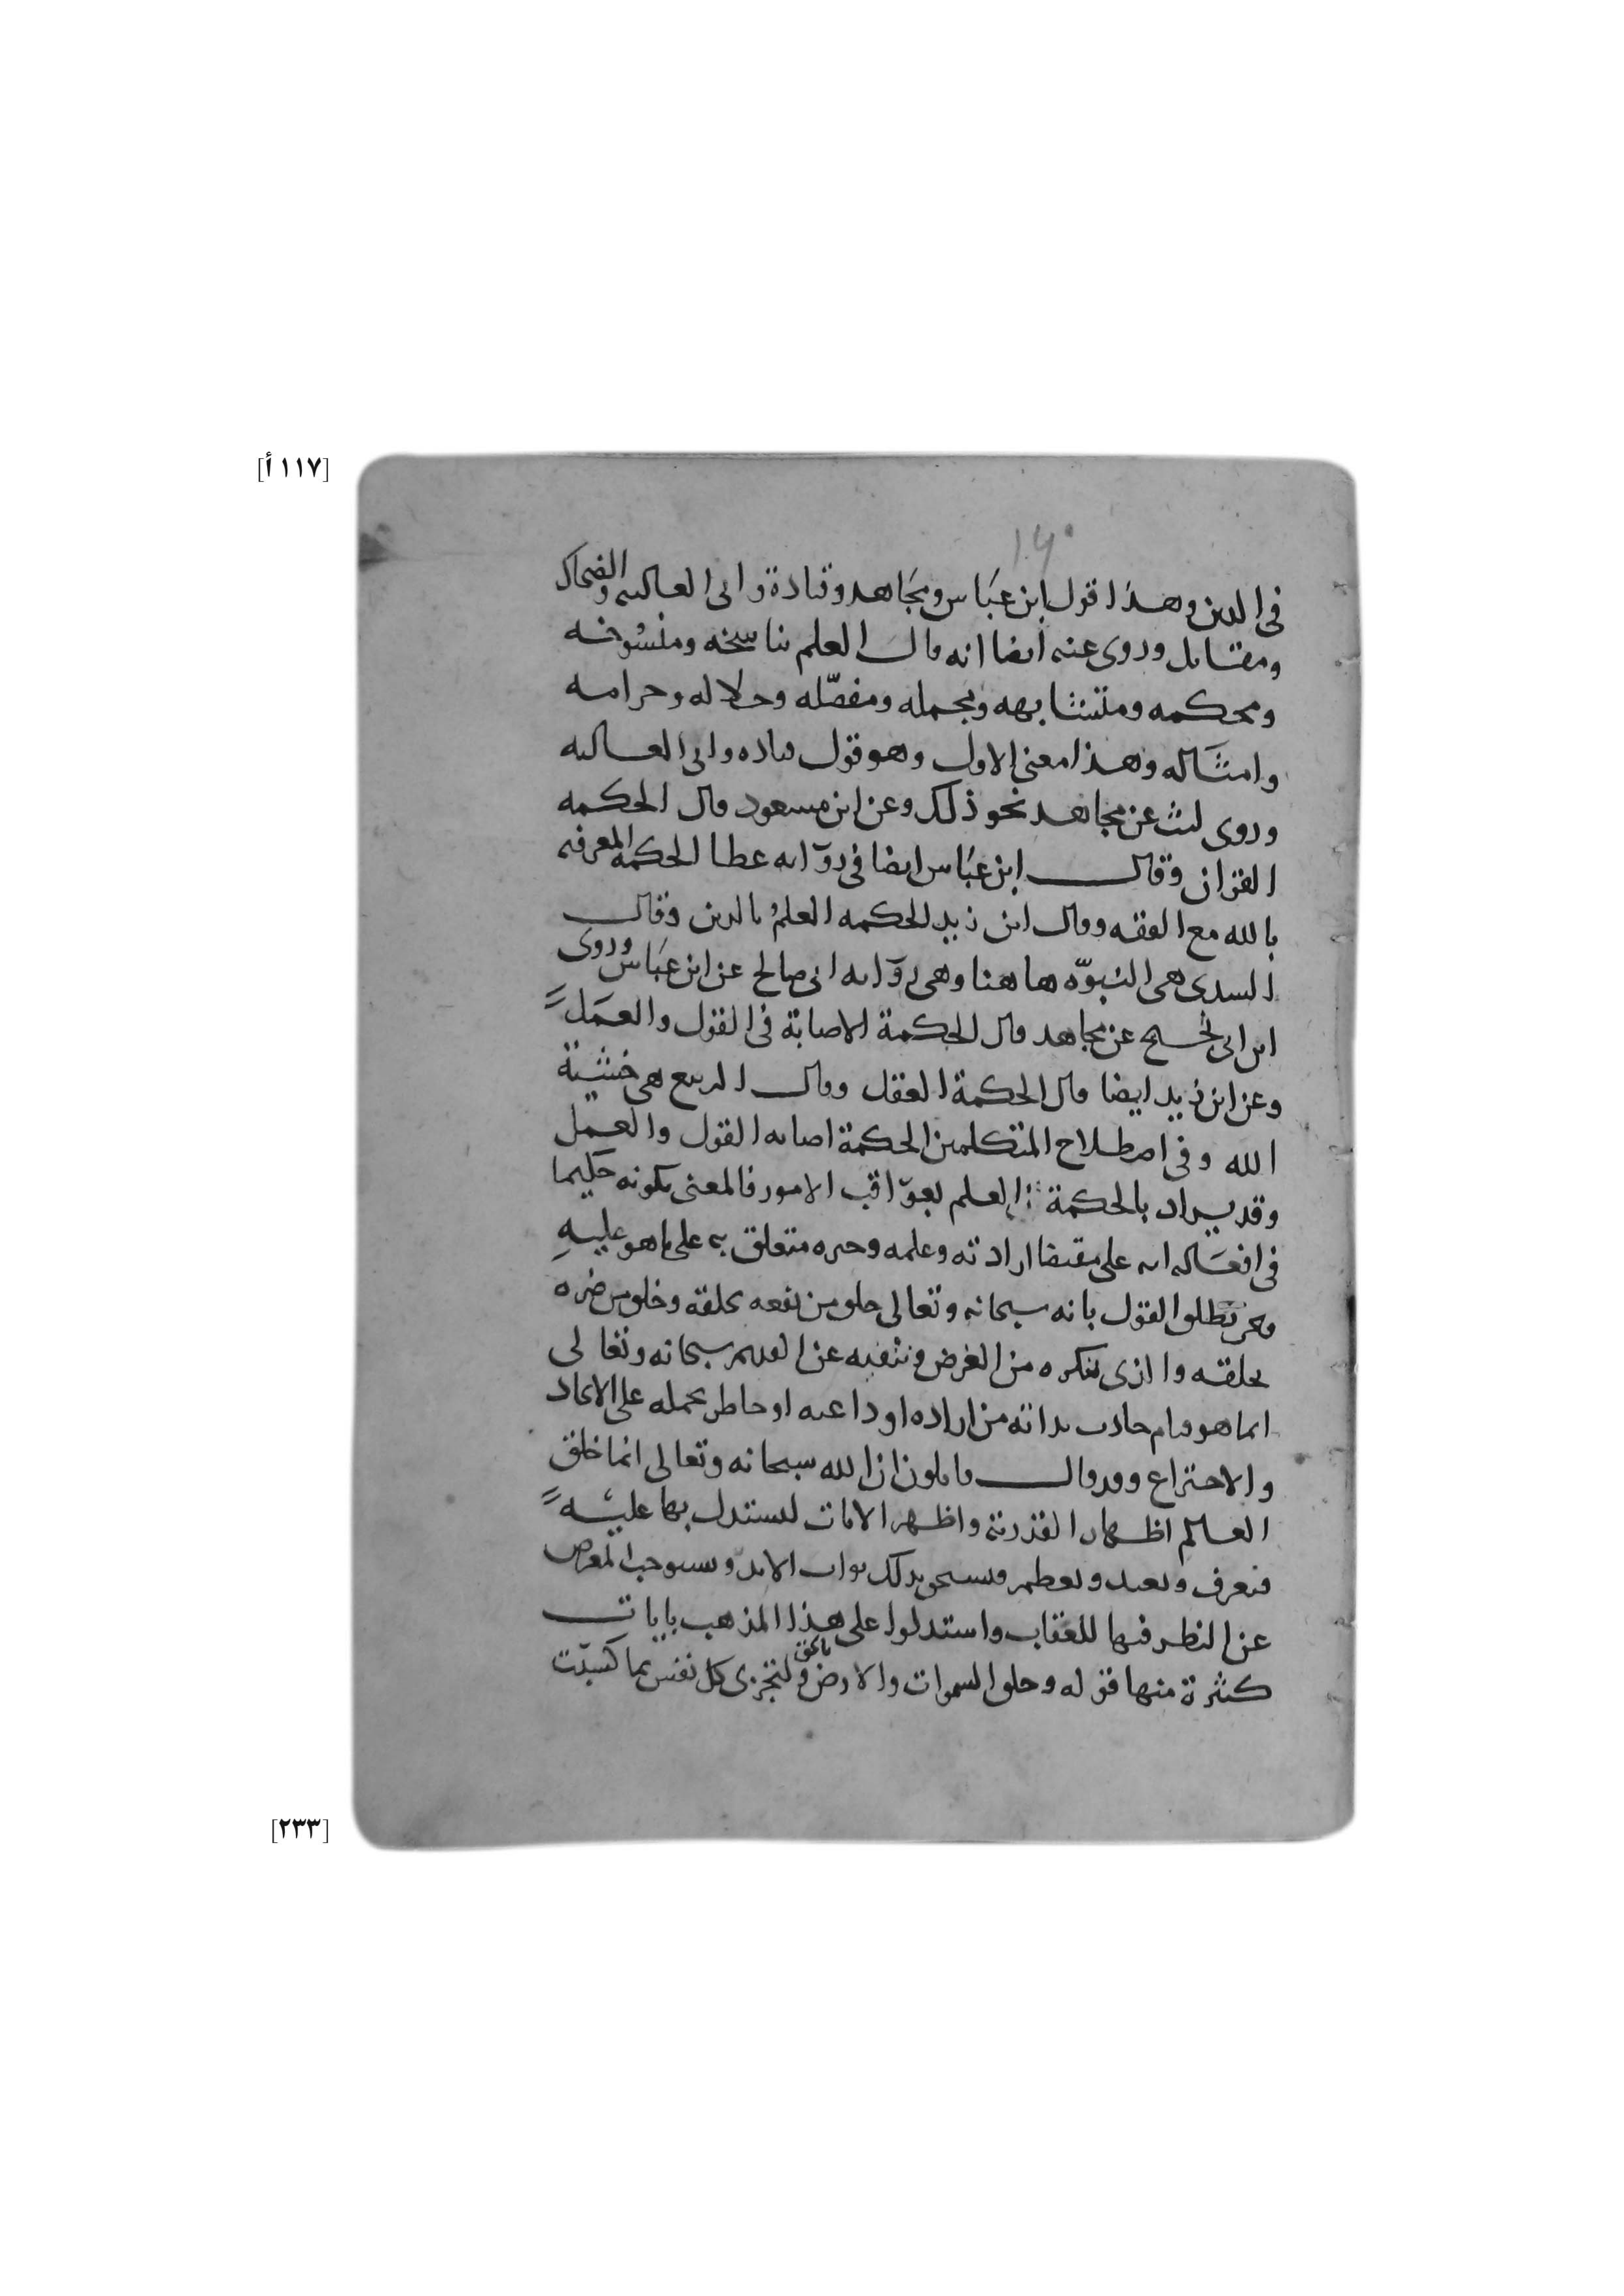 [١١٧ أ]
١٢٠
في الدين وهذا قول ابن عباس ومجاهد وقتادة وابي العاليه والضحاك
ومقاتل وروى عنه ايضا انه قال العلم بناسخه ومنسوخه
ومحكمه ومتشابهه ومجمله ومفصّله وحلاله وحرامه
وامثاله وهذا معنى الاول وهو قول قتاده وابي العاليه
وروى ليث عن مجاهد نحو ذلك وعن ابن مسعود قال الحكمه
القران وقال ابن عباس ايضا في رواىه عطا الحكمة المعرفه
بالله مع الفقه وقال ابن زيد الحكمه العلم بالدين وقال
السدى هي النبوّه هاهنا وهي رواىه ابي صالح عن ابن عباس وروى
ابن ابي نجيح عن مجاهد قال الحكمة الاصابة في القول والعمل
وعن ابن زيد ايضا قال الحكمة العقل وقال الربيع هي خشية
الله وفي اصطلاح المتكلمين الحكمة اصابه القول والعمل
وقد يراد بالحكمة العلم بعواقب الامور فالمعنى بكونه حكيما
في افعاله انه على مقتضا ارادته وعلمه وخبره متعلق به على ما هو عليه
ونحن نطلق القول بانه سبحانه وتعالى خلق من نفعه بخلقه وخلق من ضره
بخلقه والذى ننكره من الغرض وننفيه عن القديم سبحانه وتعالى
انما هو قيام حادث بذاته من اراده او داعيه او خاطر يحمله على الايجاد
والاختراع وقد قال قايلون ان الله سبحانه وتعالى انما خلق
العالم اظهارا لقدرته واظهر الايات ليستدل بها عليه
فيعرف ويعبد ويعظم ويستحق بذلك ثواب الابد ويستوجب المعرض
عن النظر فيها للعقاب واستدلوا على هذا المذهب بايات
كثيرة منها قوله وخلق السموات والارض بالحق ولتجزى كل نفس بما كسبت
[٢٣٣]